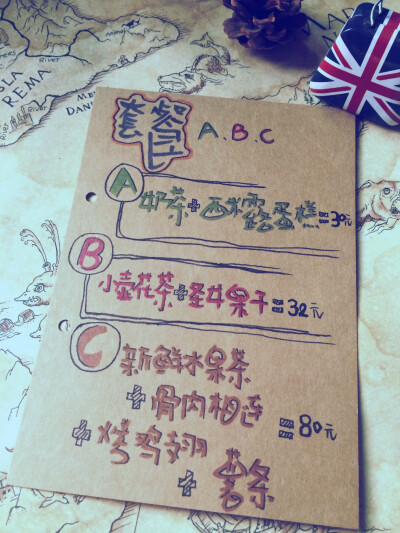 套餐 A.B.C
A 奶茶+西米露蛋糕=30元
B 小壶花茶+坚果干=32元
C 新鲜水果茶
+骨肉相连
=80元
+烤鸡翅
+薯条
REMA
River